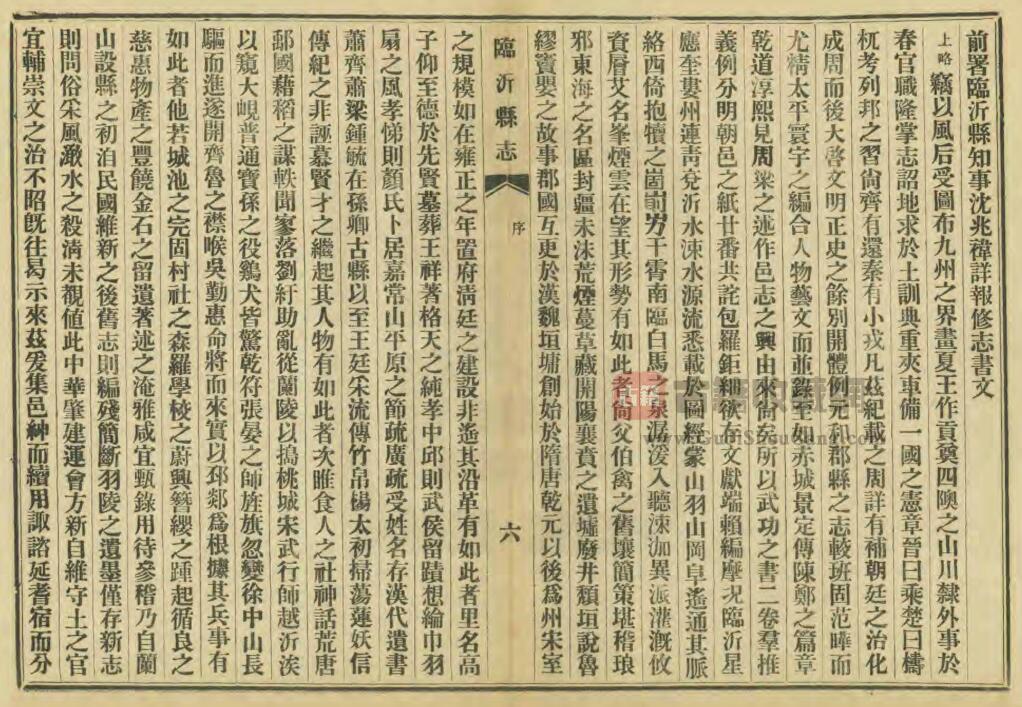 前署臨沂縣知事沈兆禕詳報修志書文
上略竊以風后受圖布九州之界畫夏王作貢奠四隩之山川隸外事於
春官職隆掌志詔地求於土訓典重夾車備一國之憲章晉曰乘楚曰檮
杌考列邦之習尚齊有還秦有小戎凡茲紀載之周詳有補朝廷之治化
成周而後大啓文明正史之餘別開體例元和郡縣之志較班固范曄而
尤精太平寰宇之編合人物藝文而並錄至如赤城景定傳陳鄭之篇章
乾道淳熙見周梁之述作邑志之興由來尚矣所以武功之書二卷羣推
義例分明朝邑之紙廿番共詫包羅鉅細欲存文獻端賴編摩况臨沂星
應奎婁州連靑兗沂水涑水源流悉載於圖經蒙山羽山岡阜遙通其脈
絡西倚抱犢之崮前勞干霄南臨白馬之泉潺湲入聽涑泇異派灌漑攸
資層艾名峯煙雲在望其形勢有如此者尙父伯禽之舊壤簡策堪稽琅
邪東海之名區封疆未沫荒煙蔓草藏開陽襄賁之遺墟廢井頹垣說魯
繆竇嬰之故事郡國互更於漢魏垣墉創始於隋唐乾元以後爲州宋室
臨沂縣志
序
六
之規模如在雍正之年置府淸廷之建設非遙其沿革有如此者里名高
子仰至德於先賢墓葬王祥著格天之純孝中邱則武侯留蹟想綸巾羽
扇之風孝悌則顏氏卜居嘉常山平原之節疏廣疏受姓名存漢代遺書
蕭齊蕭梁鍾毓在孫卿古縣以至王廷采流傳竹帛楊太初掃蕩蓮妖信
傳紀之非誣慕賢才之繼起其人物有如此者次睢食人之社神話荒唐
鄅國藉稻之謀軼聞寥落劉紆助亂從蘭陵以搗桃城宋武行師越沂涘
以窺大峴普通寶孫之役鷄犬皆驚乾符張晏之師旌旗忽變徐中山長
驅而進遂開齊魯之襟喉吳勤惠命將而來實以邳郯爲根據其兵事有
如此者他若城池之完固村社之森羅學校之蔚興簪纓之踵起循良之
慈惠物產之豐饒金石之留遺著述之淹雅咸宜甄錄用待參稽乃自蘭
山設縣之初洎民國維新之後舊志則編殘簡斷羽陵之遺墨僅存新志
則問俗采風澉水之殺淸未覩値此中華肇建運會方新自維守土之官
宜輔崇文之治不昭旣往曷示來茲爰集邑紳而續用諏諮延耆宿而分